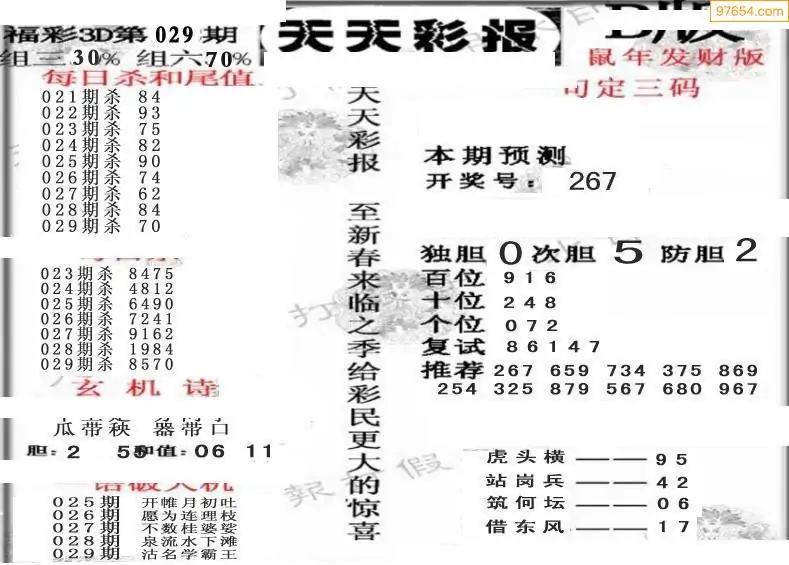 97654.com
福彩3D第029期
天天彩报
B版
组三30% 组六70%
鼠年发财版
每日杀和尾值
021期杀 84
022期杀 93
023期杀 75
024期杀 82
025期杀 90
026期杀 74
027期杀 62
028期杀 84
029期杀 70
023期杀 8475
024期杀 4812
025期杀 6490
026期杀 7241
027期杀 9162
028期杀 1984
029期杀 8570
玄机诗
胆:2 55和值:06 11
025期 开帷月初吐
026期 愿为连理枝
027期 不数桂婆娑
028期 泉流水下滩
029期 沽名学霸王
天天彩报 至新春来临之季给彩民更大的惊喜
定三码
本期预测
开奖号: 267
独胆0次胆5防胆2
百位 916
十位 248
个位 072
复试 86147
推荐 267 659 734 375 869
254 325 879 567 680 967
虎头横——95
站岗兵——42
筑何坛——06
借东风——17
打
報 假